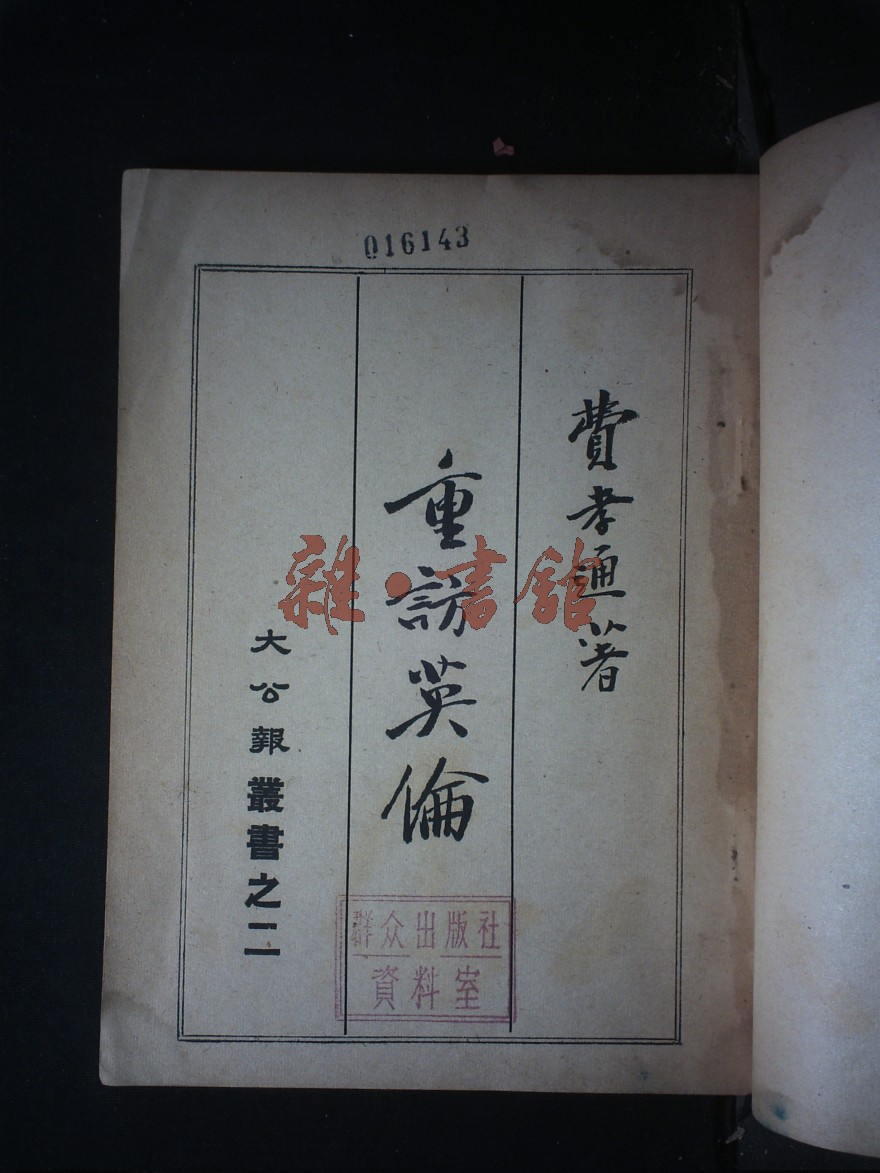 016143
費孝通著
重訪英倫
大公報叢書之二
群众出版社
資料室
雜·書館